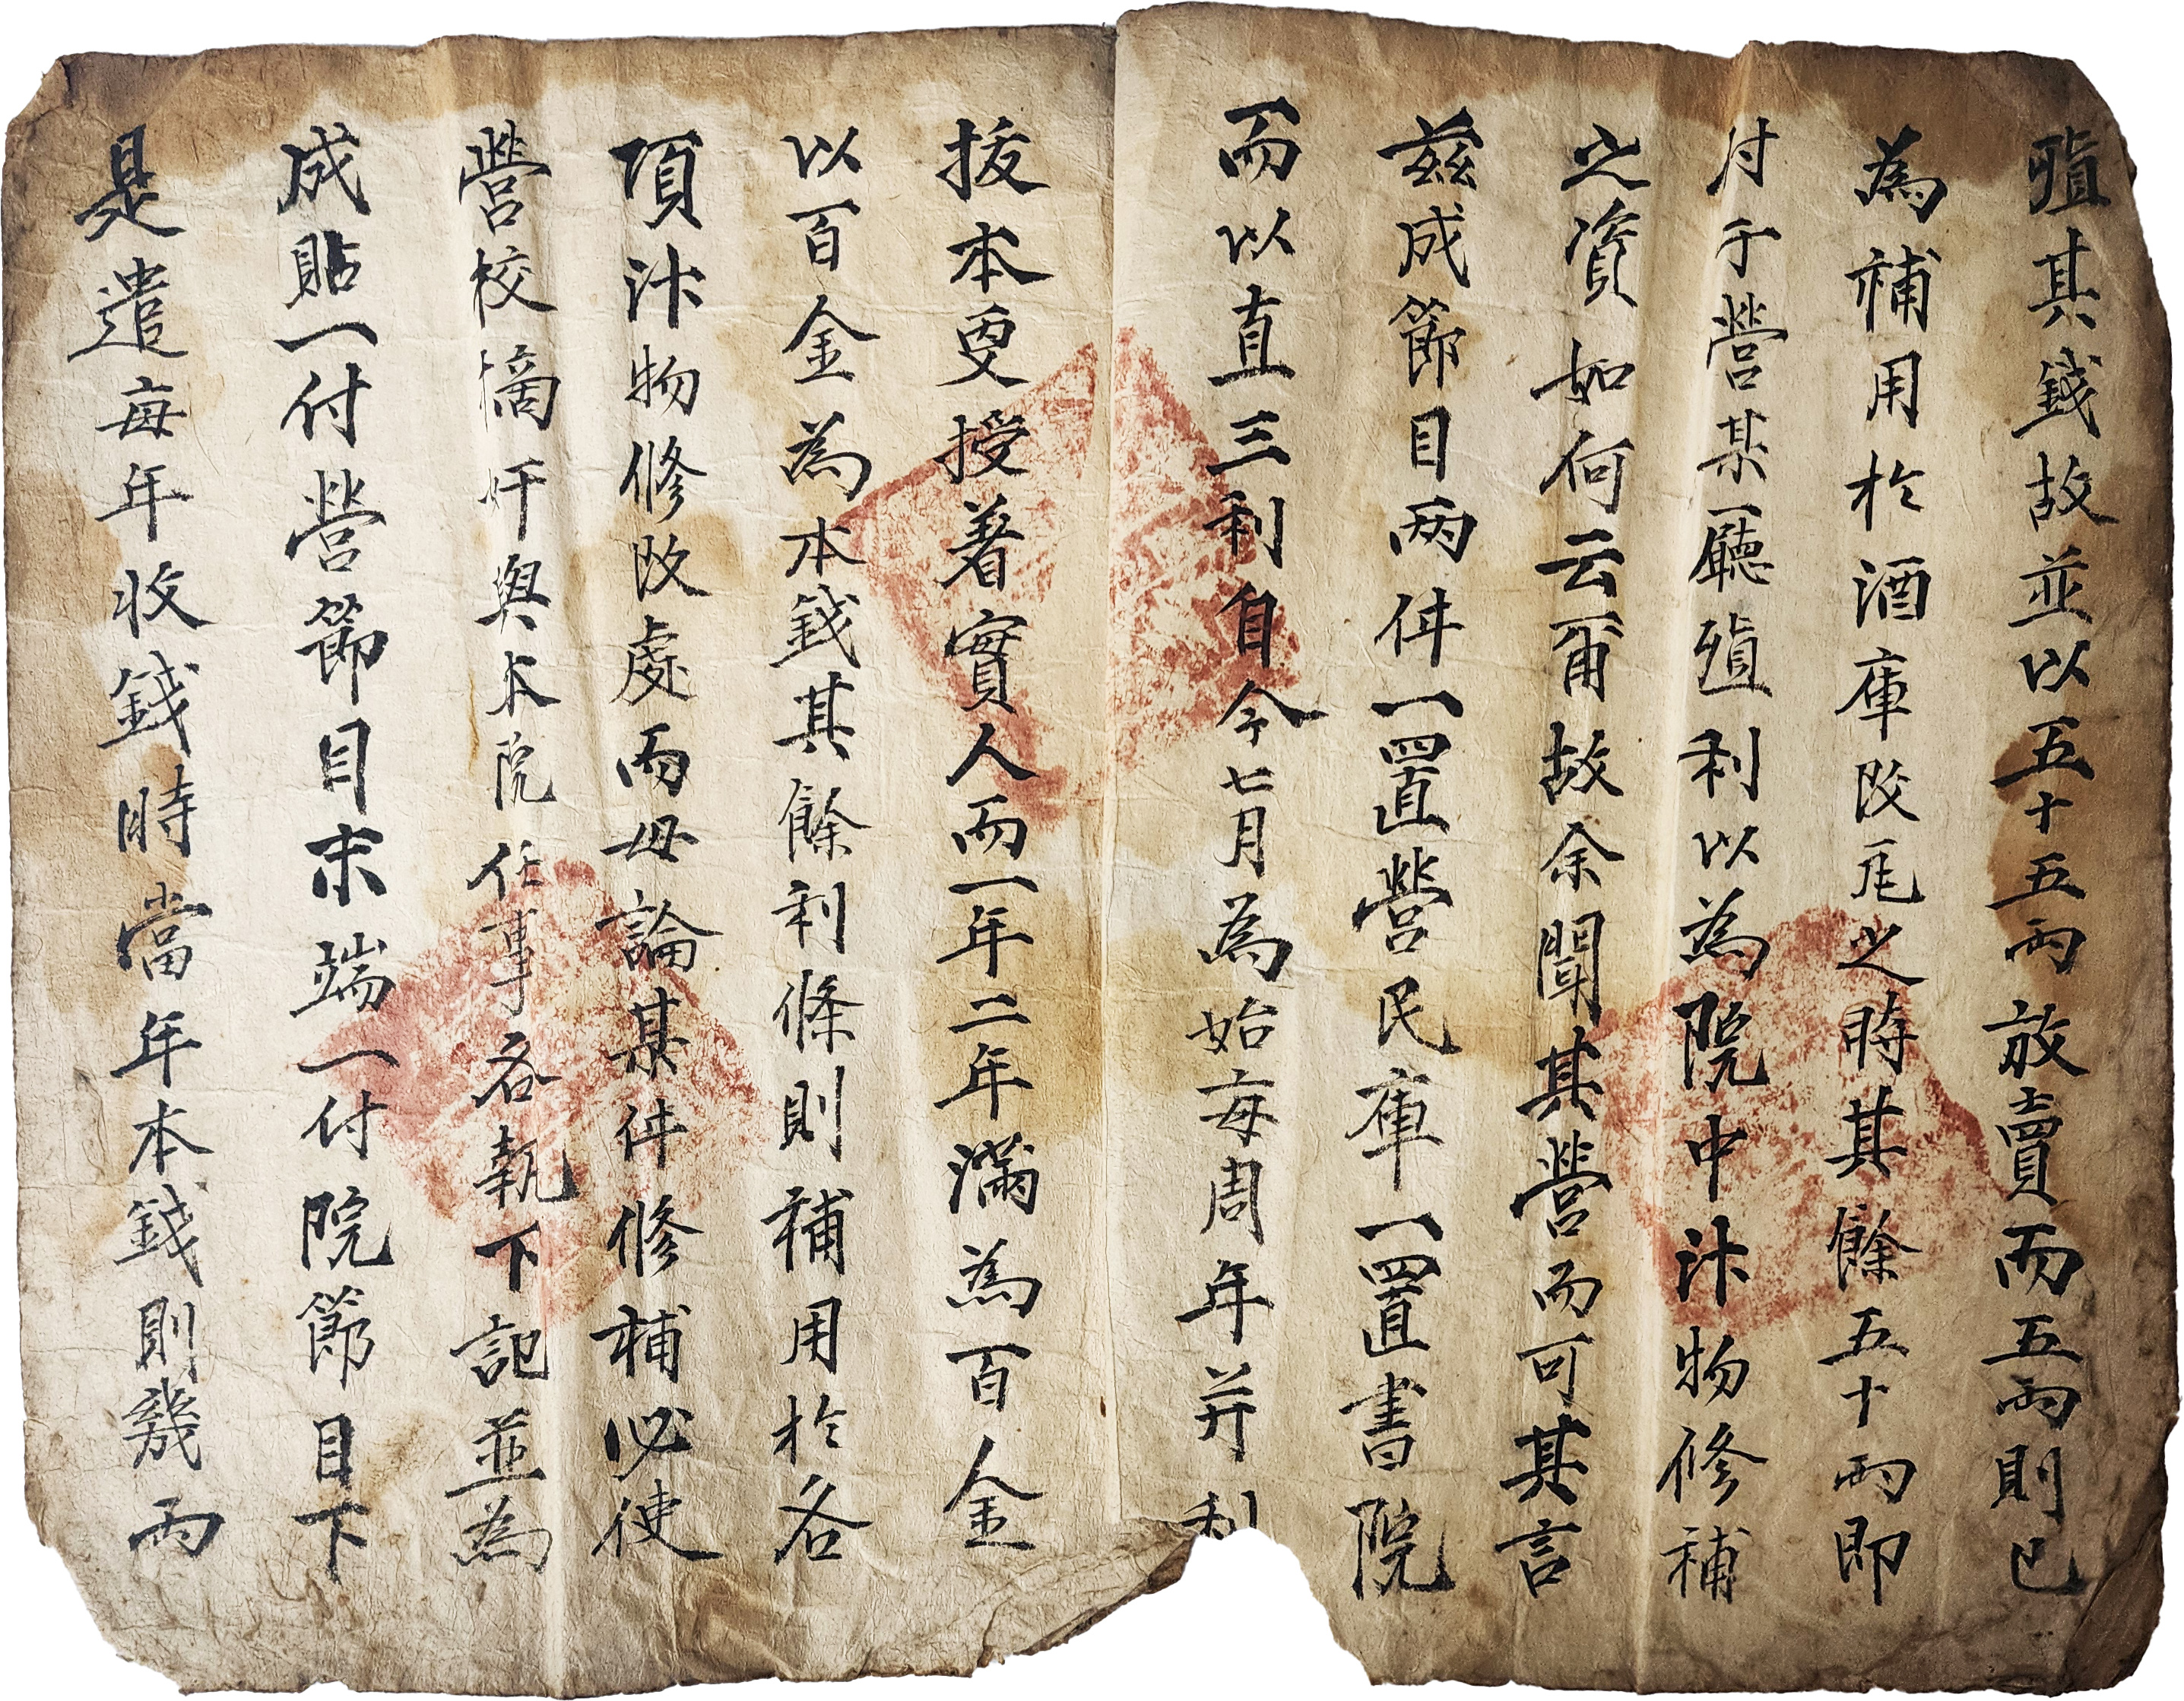 殖其錢故並以五十五兩放賣而五兩則已
為補用於酒庫改瓦之時其餘五十兩即
付于營某廳殖利以為院中汴物修補
之資如何云爾故余聞其營而可其言
茲成節目兩件一置營民庫一置書院
而以直三利自今七月為始每周年并利
拔本更授着實人而一年二年滿為百金
以百金為本錢其餘利條則補用於各
項汴物修改處而毋論某件修補必使
營校摘奸與本院任事各執下記並為
成貼一付營節目末端一付院節目下
是遣每年收錢時當年本錢則幾兩